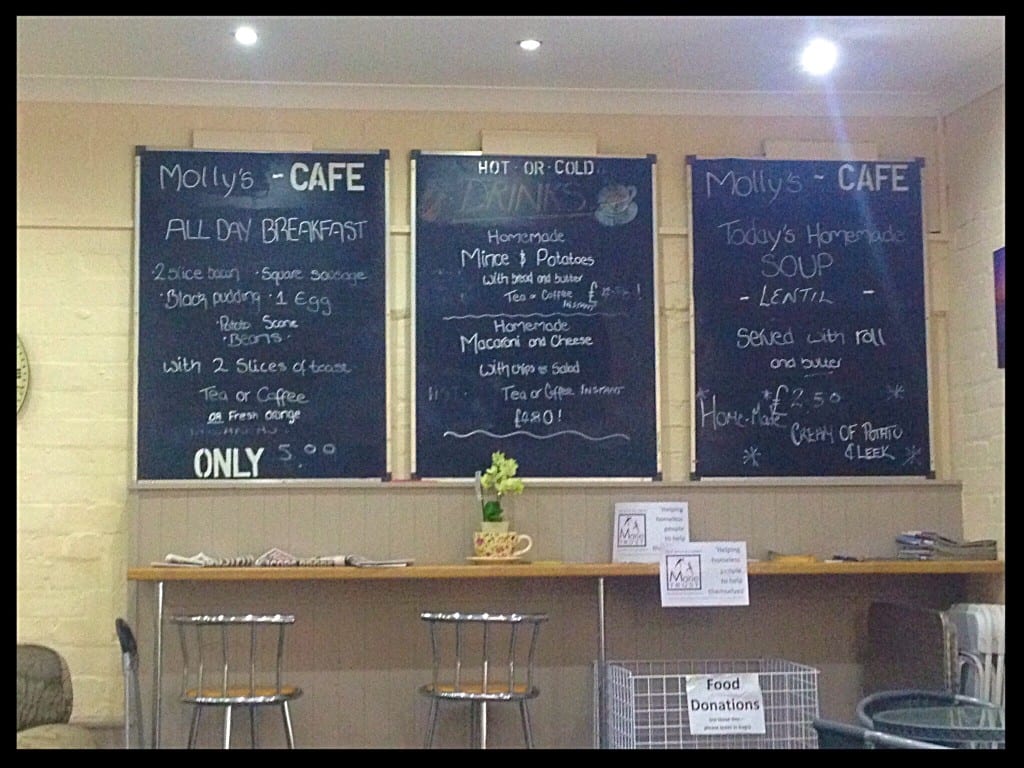 Molly's - CAFE
ALL DAY BREAKFAST
· 2 slice bacon · Square sausage
· Black pudding · 1 Egg
· Potato Scone
· Beans ·
with 2 Slices of toast
Tea or Coffee
OR Fresh Orange
ONLY 5.00
HOT · OR · COLD
DRINKS
Homemade
Mince & Potatoes
with bread and butter
Tea or Coffee £
INSTANT
Homemade
Macaroni and Cheese
with chips or Salad
Tea or Coffee INSTANT
£4.80!
Molly's - CAFE
Today's Homemade
SOUP
- LENTIL -
Served with roll
and butter
£2.50
Home-Made
CREAM OF POTATO
& LEEK
Helping
homeless
people
to help
Marie
TRUST
Helping
homeless
people
to help
themselves
Marie
TRUST
Food
Donations